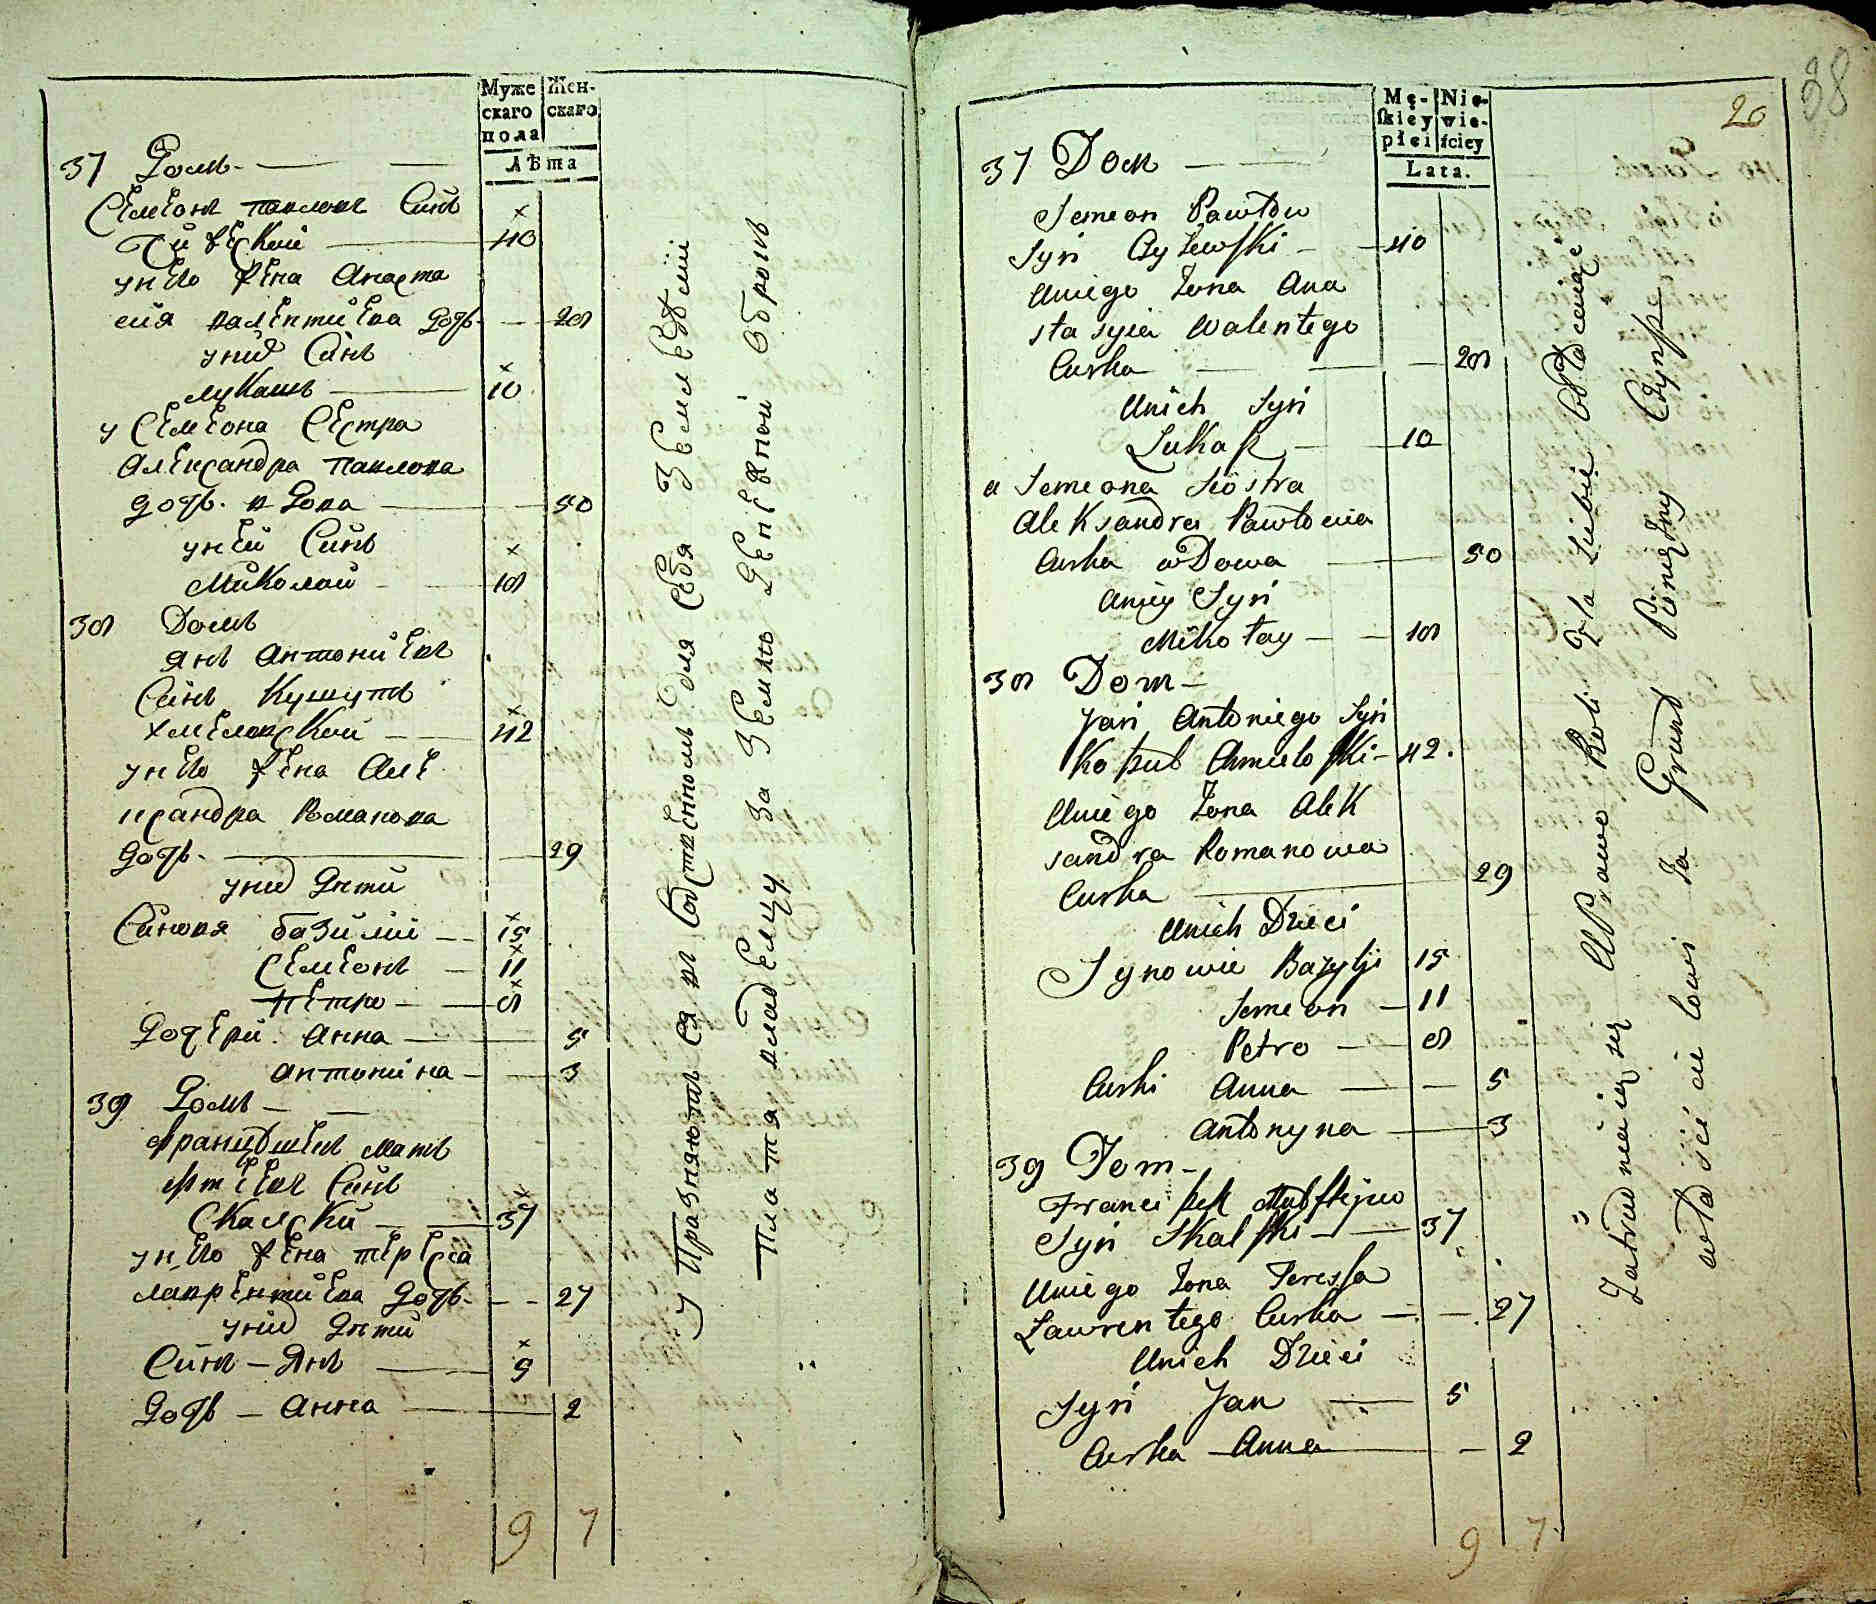 Муже
скаго
пола
Жен-
скаго
Лѣта
37 Домъ
Семіонъ Павловъ Синъ
Чижевский 40
у него жена Анаста
сия Валентиева дочь 28
у них Синъ
Лукашъ 10
у Семіона сестра
Александра Павлова
дочь вдова 50
у ней Синъ
Миколай 18
38 Домъ
Янъ Антониевъ
Синъ Кушубъ
Хмелевский 42
у него жена Але
ксандра Романова
дочь 29
у них дети
Синовя Базилий 15
Семіонъ 11
Петро 8
Дочери Анна 5
Антонина 3
39 Домъ
Францишекъ Матъ
Синъ
Скалский 37
у него жена Тереса
Лаврентиева дочь 27
у них дети
Синъ Янъ 5
дочь Анна 2
9 7
Упражняются въ собственномъ для себя земледелии
Платя владелцу за землю денежной оброкъ
38
20
Mę-
skiey
płci
Nie-
wie-
sciey
Lata.
37 Dom
Semeon Pawłow
Syn Czyżewski 40
Uniego Żona Ana
stasyia Walentego
Curka 28
Unich Syn
Łukasz 10
u Semeona Siostra
Aleksandra Pawłowa
Curka wDowa 50
Uniey Syn
Mikołay 18
38 Dom
Jan Antoniego Syn
Koszub Chmielofski 42.
Uniego Żona Alek
sandra Romanowa
Curka 29
Unich Dzieci
Synowie Bazyli 15
Semeon 11
Petro 8
Curki Anna 5
Antonyna 3
39 Dom
Franciszek
Syn Skalski 37
Uniego Żona Teressa
Lawrentego Curka 27
Unich Dzieci
Syn Jan 5
Curka Anna 2
9 7
Zatrudniaią się Uprawą Roli Dla Siebie Opłacaiąc
właścicielowi Za Grunt Pieniężny Czynsz